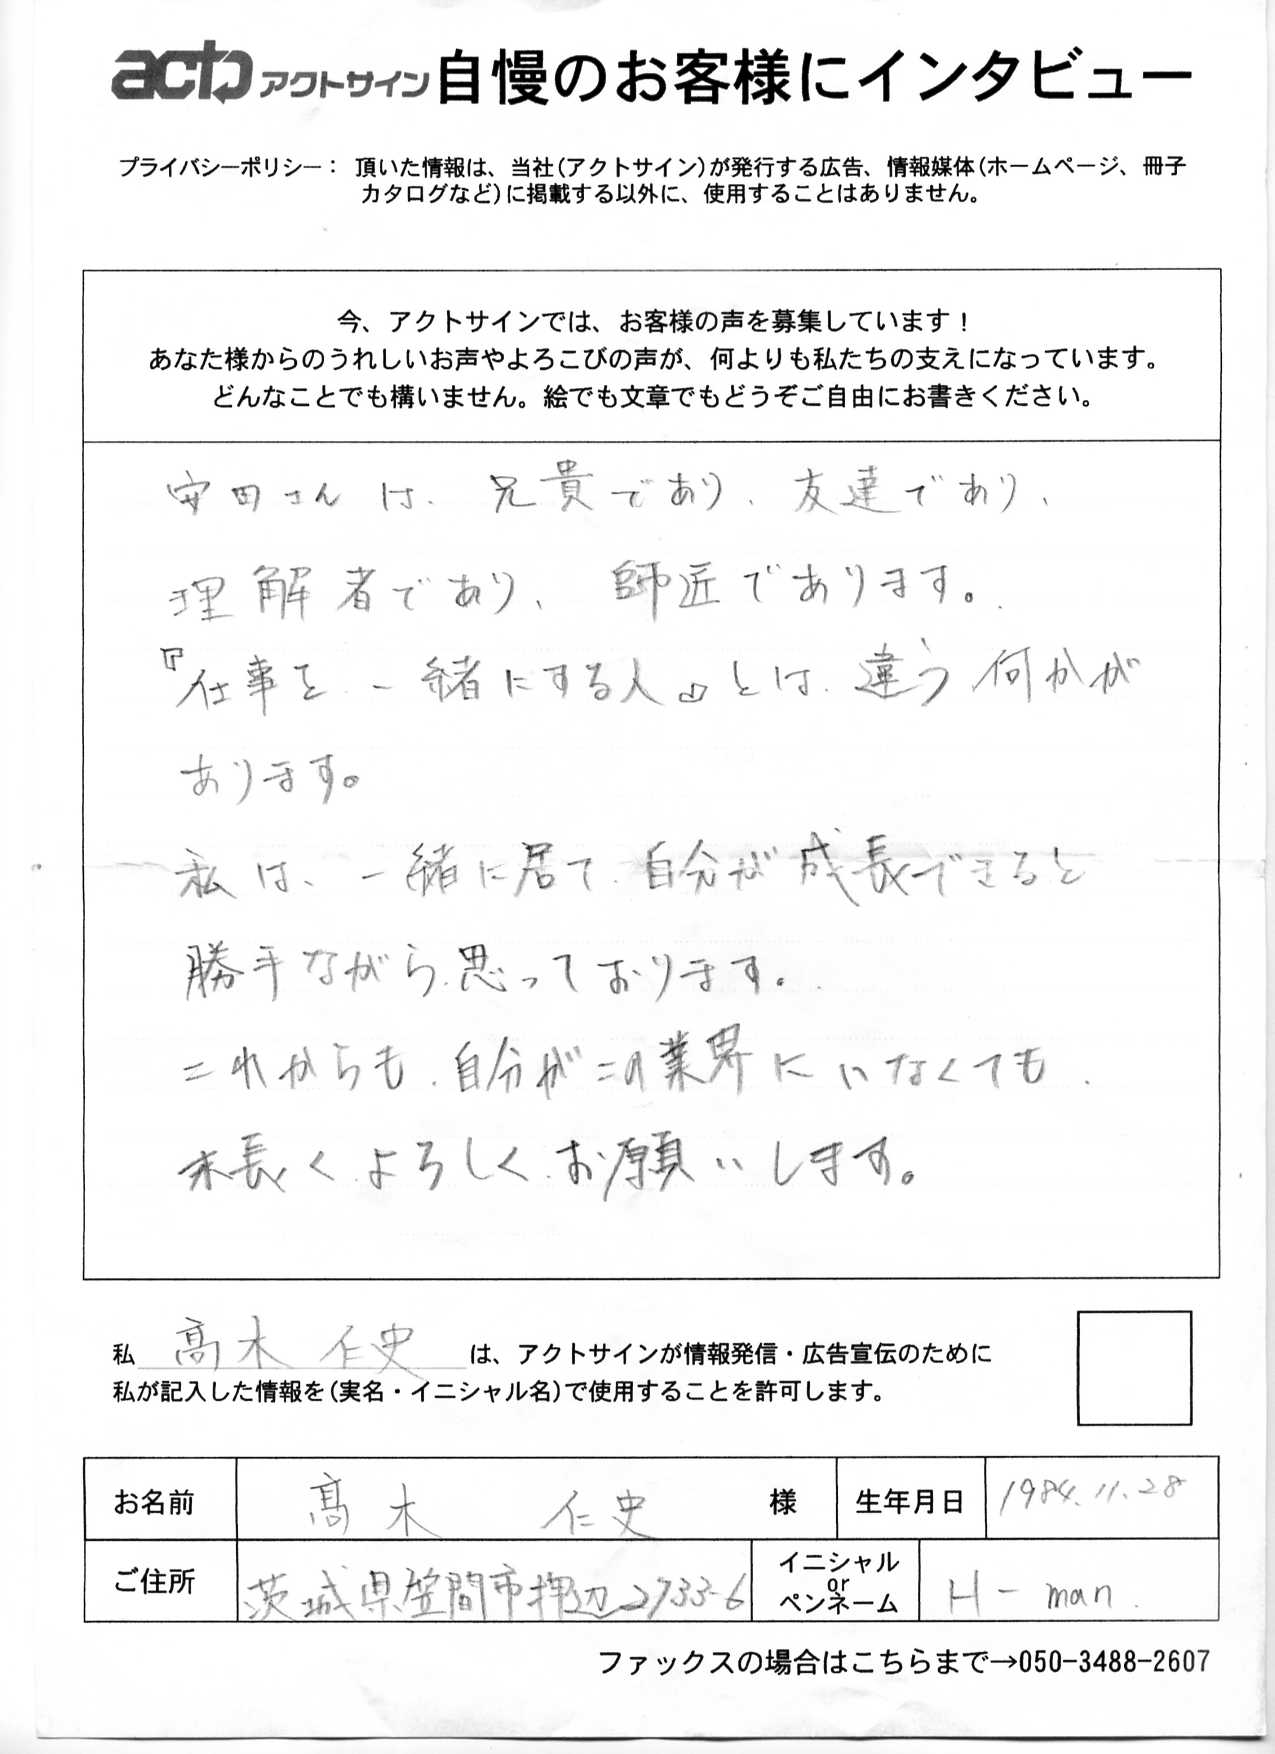 actp アクトサイン 自慢のお客様にインタビュー
プライバシーポリシー： 頂いた情報は、当社（アクトサイン）が発行する広告、情報媒体（ホームページ、冊子
カタログなど）に掲載する以外に、使用することはありません。
今、アクトサインでは、お客様の声を募集しています！
あなた様からのうれしいお声やよろこびの声が、何よりも私たちの支えになっています。
どんなことでも構いません。絵でも文章でもどうぞご自由にお書きください。
安田さんは、兄貴であり、友達であり、
理解者であり、師匠であります。
『仕事を一緒にする人』とは、違う何かが
あります。
私は、一緒に居て、自分が成長できると
勝手ながら、思っております。
これからも、自分がこの業界にいなくても、
末長くよろしくお願いします。
私 髙木 仁史 は、アクトサインが情報発信・広告宣伝のために
私が記入した情報を（実名・イニシャル名）で使用することを許可します。
お名前 髙木 仁史 様 生年月日 1984.11.28
ご住所 茨城県笠間市押辺2733-6 イニシャル or ペンネーム H-man.
ファックスの場合はこちらまで→050-3488-2607